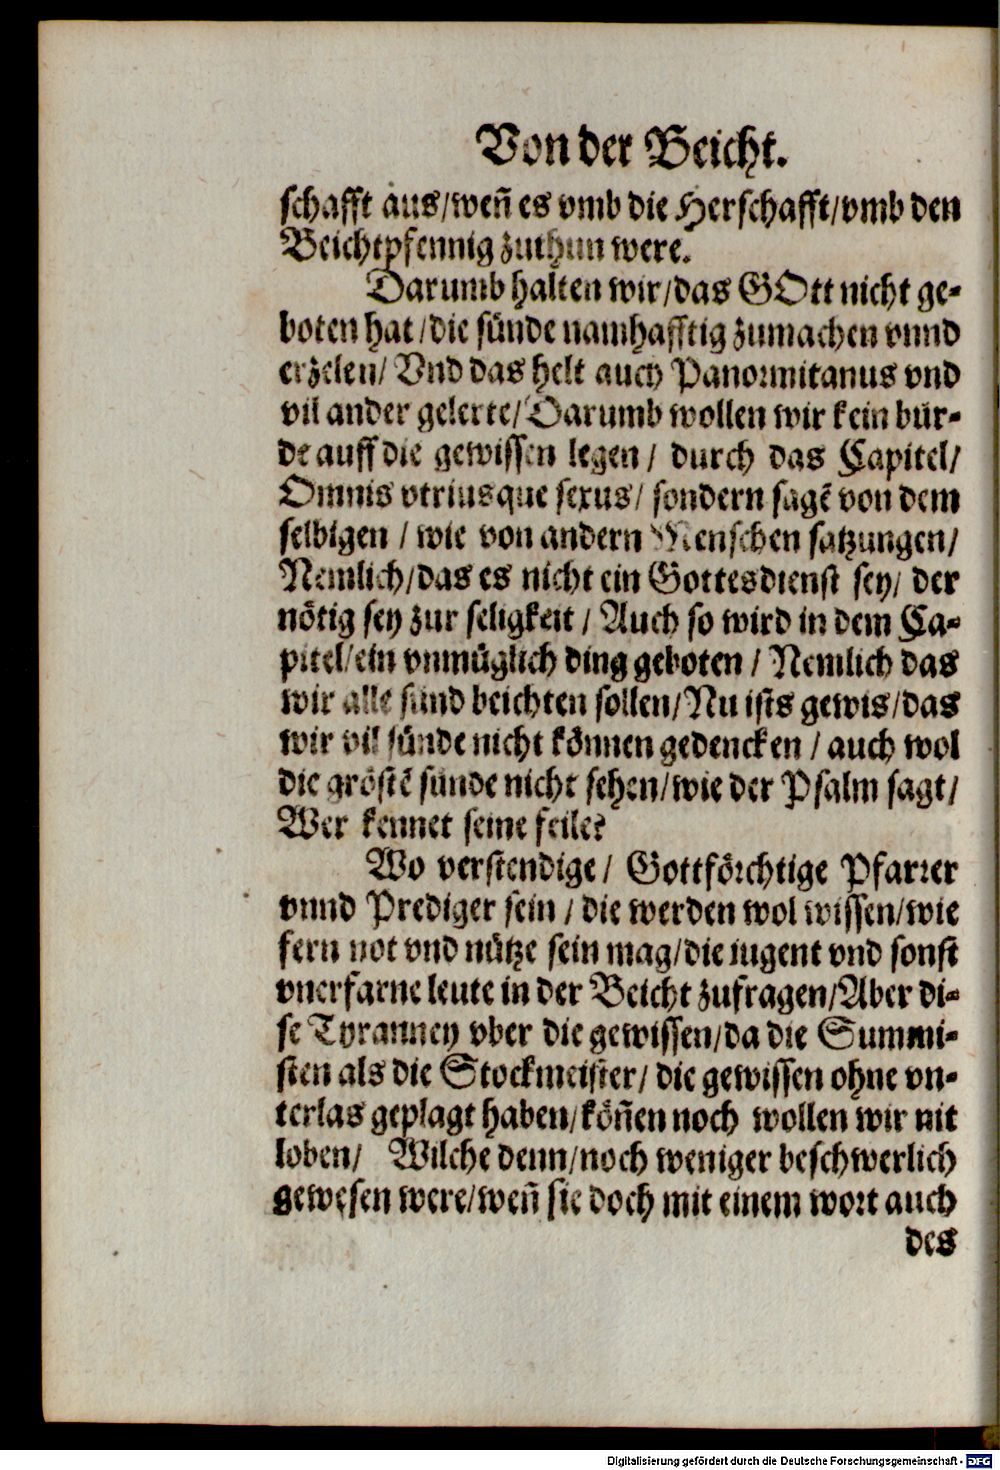 Von der Beicht.
schafft aus/weñ es vmb die Herschafft/vmb den
Beichtpfennig zuthun were.
Darumb halten wir/das GOtt nicht ge-
boten hat/die sünde namhafftig zumachen vnnd
erzelen/ Vnd das helt auch Panormitanus vnd
vil ander gelerte/Darumb wollen wir kein bür-
de auff die gewissen legen/ durch das Capitel/
Omnis vtriusque sexus/ sondern sagẽ von dem
selbigen / wie von andern Menschen satzungen/
Nemlich/das es nicht ein Gottesdienst sey/ der
nötig sey zur seligkeit / Auch so wird in dem Ca-
pitel/ein vnmüglich ding geboten / Nemlich das
wir alle sünd beichten sollen/Nu ists gewis/das
wir vil sünde nicht können gedencken / auch wol
die gröstẽ sünde nicht sehen/wie der Psalm sagt/
Wer kennet seine feile?
Wo verstendige/ Gottförchtige Pfarrer
vnnd Prediger sein / die werden wol wissen/wie
fern not vnd nütze sein mag/die iugent vnd sonst
vnerfarne leute in der Beicht zufragen/Aber di-
se Tyranney vber die gewissen/da die Summi-
sten als die Stockmeister/ die gewissen ohne vn-
terlas geplagt haben/köñen noch wollen wir nit
loben/ Wilche denn/noch weniger beschwerlich
gewesen were/weñ sie doch mit einem wort auch
des
Digitalisierung gefördert durch die Deutsche Forschungsgemeinschaft - DFG